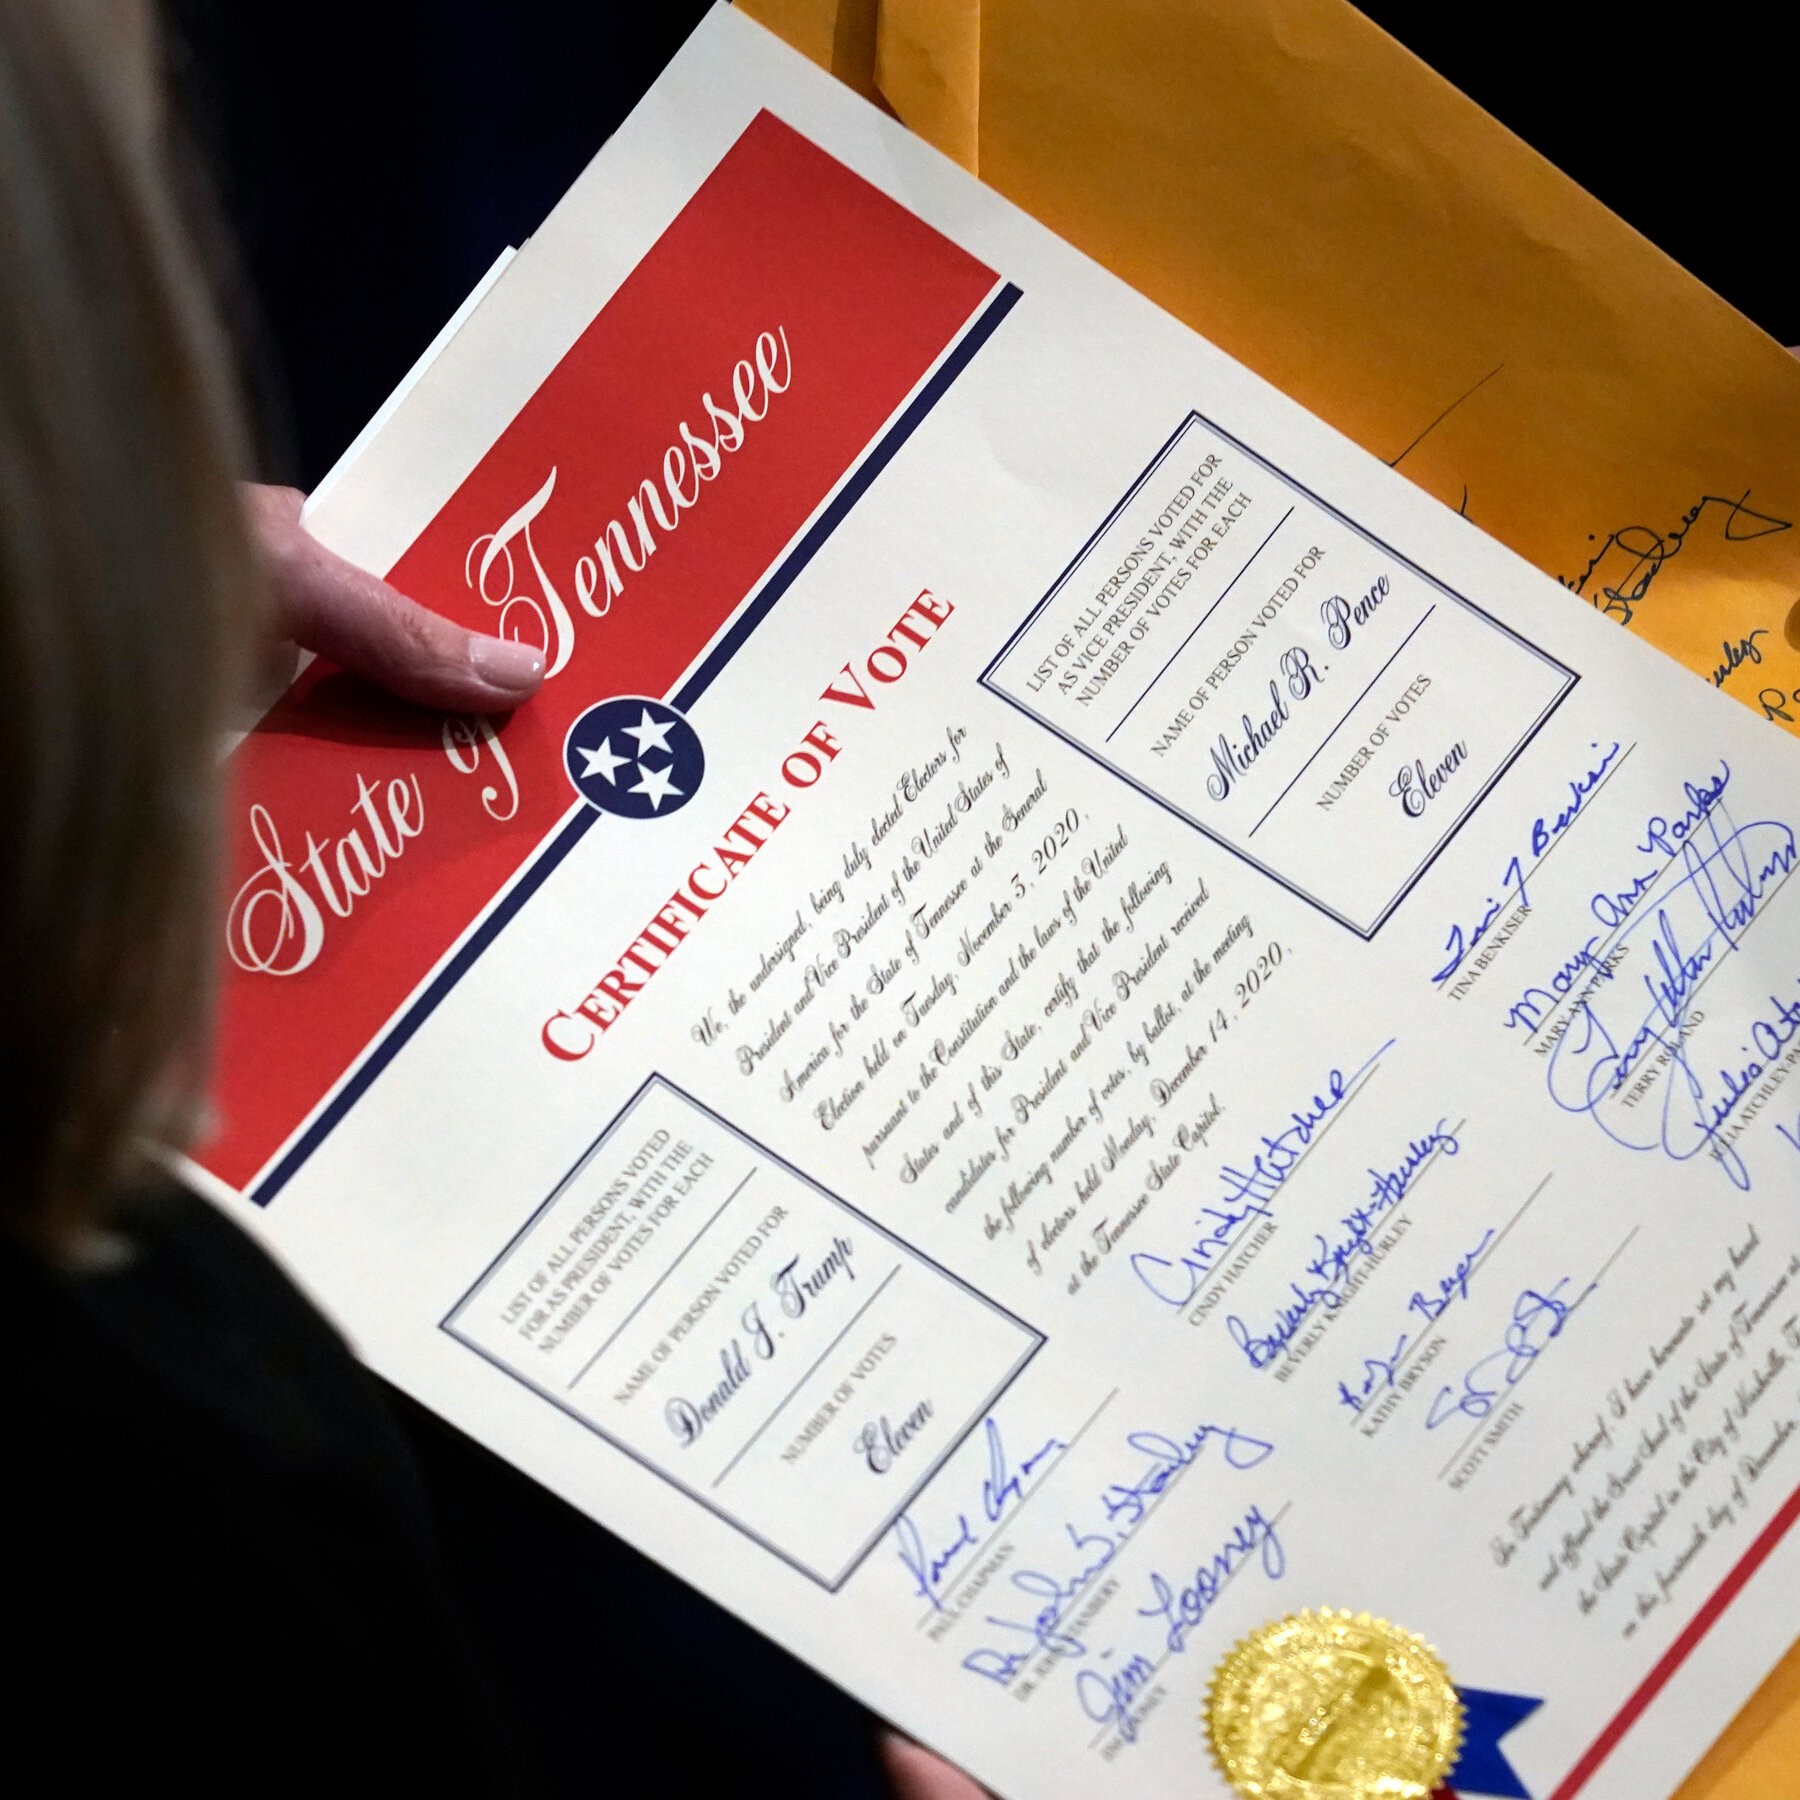 State of Tennessee
CERTIFICATE OF VOTE
We, the undersigned, being duly elected Electors for
President and Vice President of the United States of
America for the State of Tennessee at the General
Election held on Tuesday, November 3, 2020,
pursuant to the Constitution and the laws of the United
States and of this State, certify that the following
candidates for President and Vice President received
the following number of votes, by ballot, at the meeting
of electors held Monday, December 14, 2020,
at the Tennessee State Capitol.
LIST OF ALL PERSONS VOTED
FOR AS PRESIDENT, WITH THE
NUMBER OF VOTES FOR EACH
NAME OF PERSON VOTED FOR
Donald J. Trump
NUMBER OF VOTES
Eleven
LIST OF ALL PERSONS VOTED FOR
AS VICE PRESIDENT, WITH THE
NUMBER OF VOTES FOR EACH
NAME OF PERSON VOTED FOR
Michael R. Pence
NUMBER OF VOTES
Eleven
Paul Chapman
PAUL CHAPMAN
Dr. John D. Stanbery
DR. JOHN STANBERY
Jim Looney
JIM LOONEY
Cindy Hatcher
CINDY HATCHER
Beverly Knight-Hurley
BEVERLY KNIGHT-HURLEY
KATHY BRYSON
SCOTT SMITH
Tina Benkiser
TINA BENKISER
Mary Ann Parks
MARY ANN PARKS
TERRY ROLAND
Julia
JULIA ATCHLEY-PA
In Testimony whereof, I have hereunto set my hand
and affixed the Great Seal of the State of Tennessee at
the State Capitol in the City of Nashville,
on this fourteenth day of December,